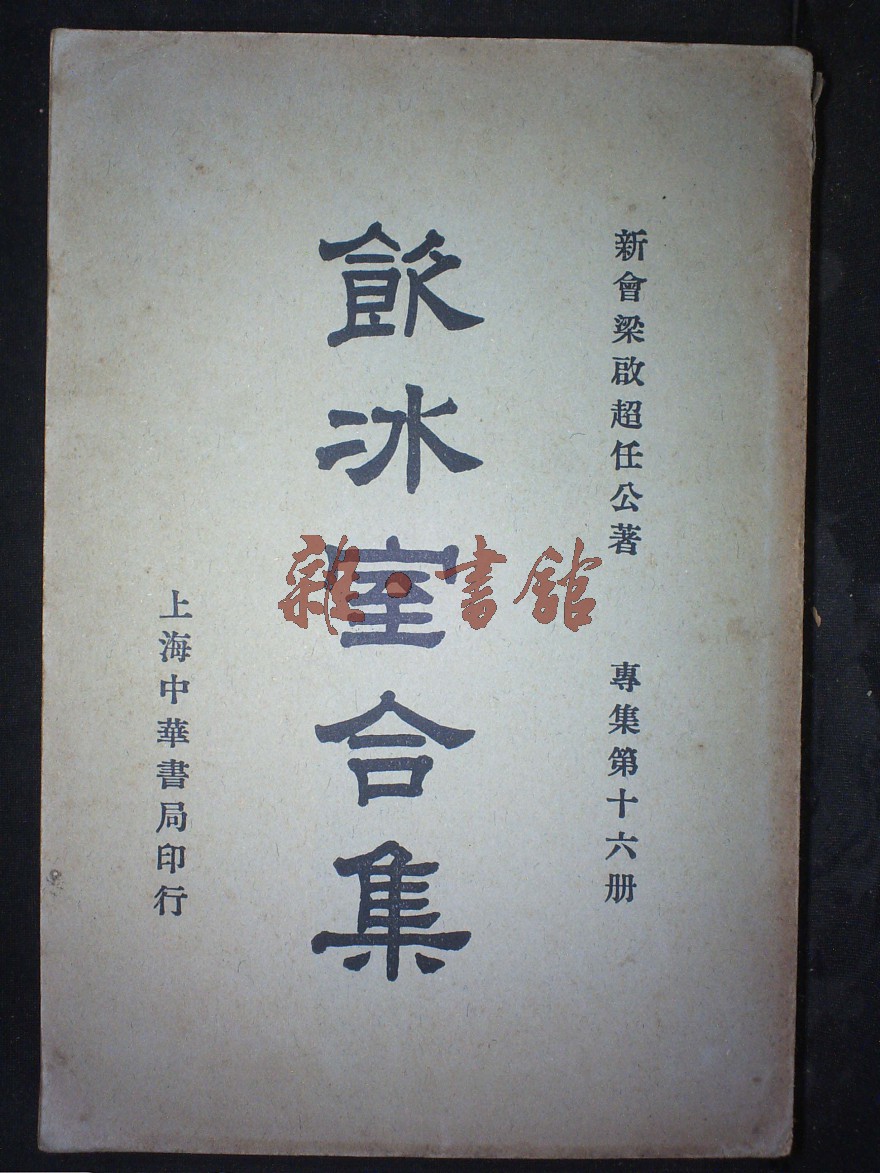 新會梁啟超任公著　專集第十六册
飲冰室合集
上海中華書局印行
雜·書館